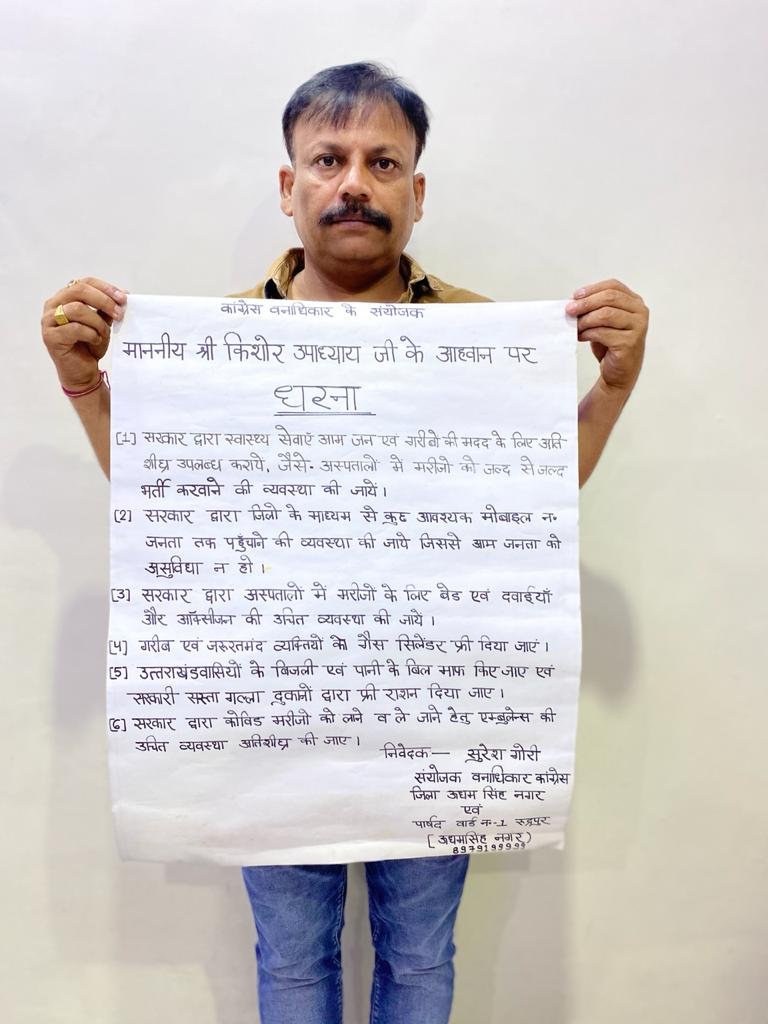 कांग्रेस वनाधिकार के संयोजक
माननीय श्री किशोर उपाध्याय जी के आहवान पर
धरना
[1] सरकार द्वारा स्वास्थ्य सेवाएँ आम जन एवं गरीबो की मदद के लिए अति
शीघ्र उपलब्ध कराये, जैसे- अस्पतालो में मरीजो को जल्द से जल्द
भर्ती करवाने की व्यवस्था की जायें।
[2] सरकार द्वारा जिलो के माध्यम से कुछ आवश्यक मोबाइल न०
जनता तक पहुँचाने की व्यवस्था की जाये जिससे आम जनता को
असुविधा न हो।
[3] सरकार द्वारा अस्पतालो में मरीजो के लिए बेड एवं दवाईयाँ
और ऑक्सीजन की उचित व्यवस्था की जायें।
[4] गरीब एवं जरुरतमंद व्यक्तियों के गैस सिलेंडर फ्री दिया जाएं।
[5] उत्तराखंडवासियों के बिजली एवं पानी के बिल माफ किए जाए एवं
सरकारी सस्ता गल्ला दुकानों द्वारा फ्री राशन दिया जाए।
[6] सरकार द्वारा कोविड मरीजो को लाने व ले जाने हेतु एम्बुलेन्स की
उचित व्यवस्था अतिशीघ्र की जाए।
निवेदक— सुरेश गौरी
संयोजक वनाधिकार कांग्रेस
जिला ऊधम सिंह नगर
एवं
पार्षद वार्ड न०-1 रुद्रपुर
[ऊधमसिंह नगर)
8979199999